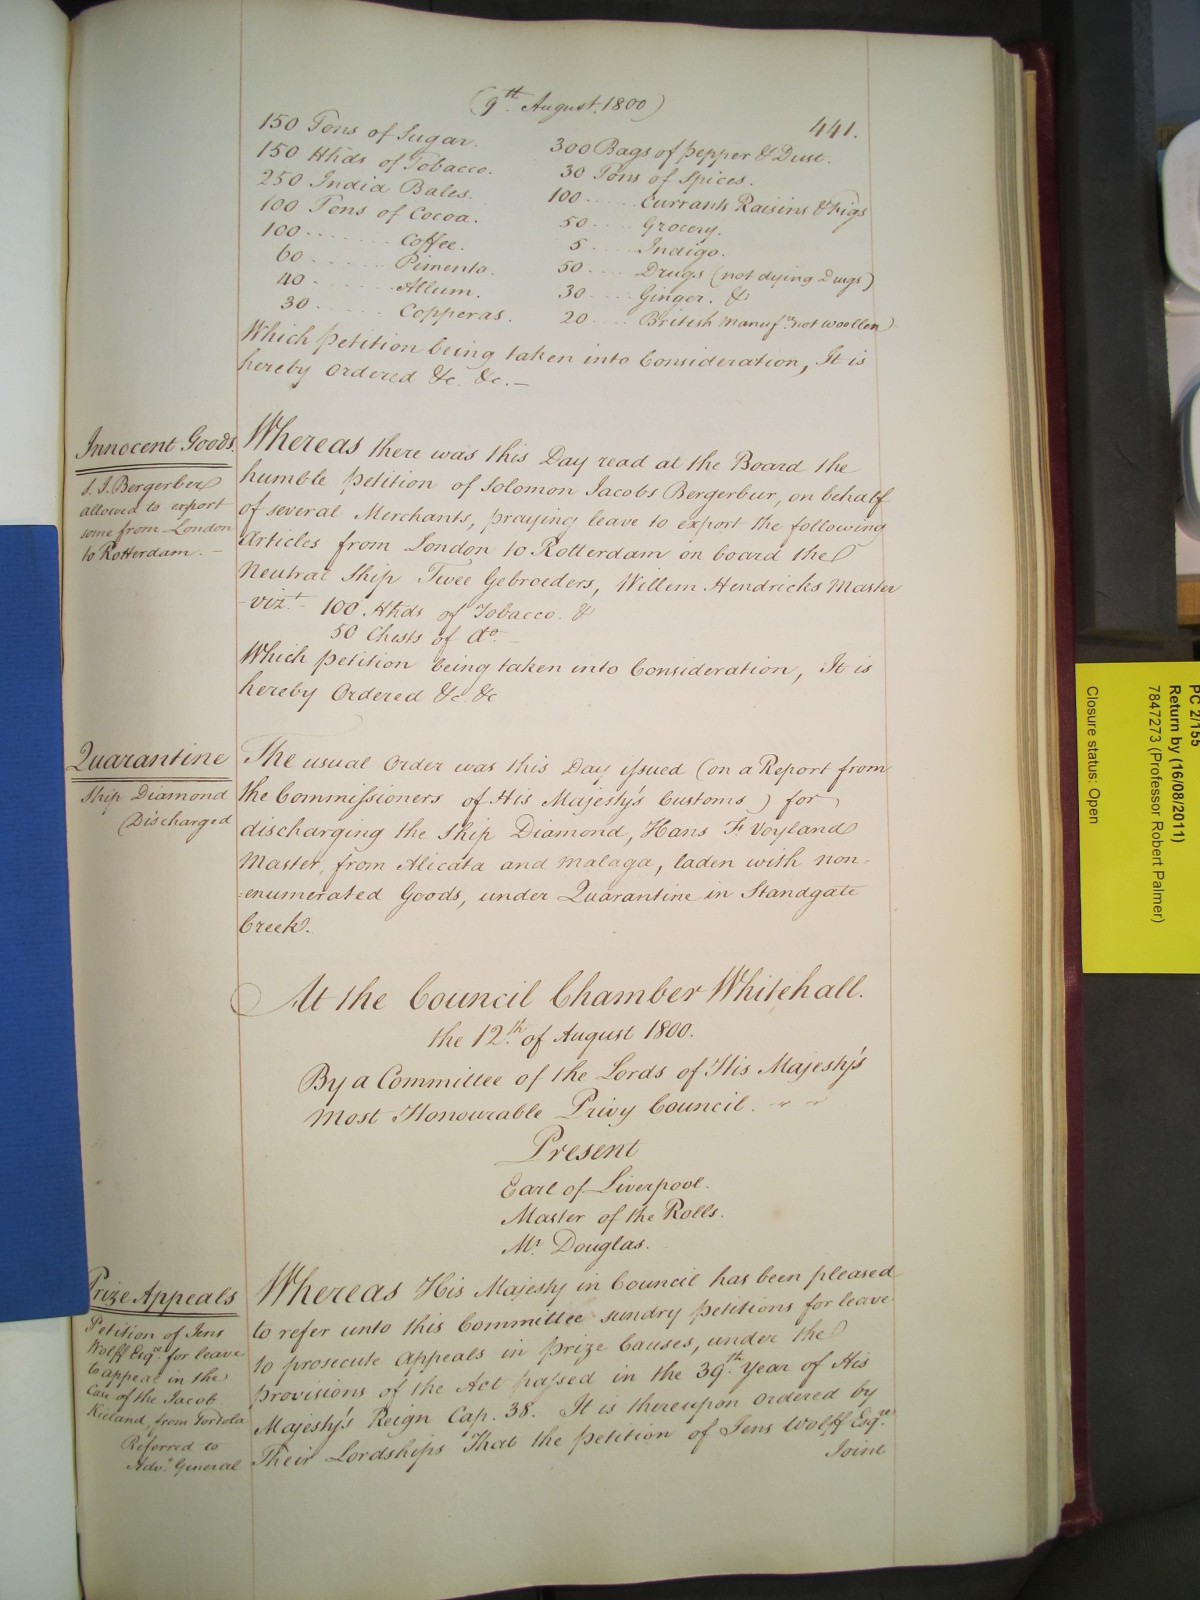 (9th August, 1800)
441.
150 Tons of Sugar.
150 Hhds of Tobacco.
250 India Bales.
100 Tons of Cocoa.
100 ....... Coffee.
60 ....... Pimento.
40 ....... Allum.
30 ....... Copperas.
300 Bags of Pepper & Dust.
30 Tons of Spices.
100 ..... Currants Raisins & Figs
50 .... Grocery.
5 .... Indigo.
50 .... Drugs (not dying Drugs)
30 .... Ginger. &
20 .... British Manufres not woollen
Which Petition being taken into Consideration, It is
hereby Ordered &c. &c. —
Innocent Goods.
S. J. Bergerbur
allowed to export
some from London
to Rotterdam. —
Whereas there was this Day read at the Board the
humble Petition of Solomon Jacobs Bergerbur, on behalf
of several Merchants, praying leave to export the following
Articles from London to Rotterdam on board the
Neutral Ship Twee Gebroeders, Willem Hendricks Master
- vizt. - 100. Hhds of Tobacco. &
50 Chests of do. —
Which Petition being taken into Consideration, It is
hereby Ordered &c. &c
Quarantine
Ship Diamond
Discharged
The usual Order was this Day issued (on a Report from
the Commissioners of His Majesty's Customs) for
discharging the Ship Diamond, Hans F. Voyland
Master, from Alicata and Malaga, laden with non-
=enumerated Goods, under Quarantine in Standgate
Creek.
At the Council Chamber Whitehall.
the 12th of August 1800.
By a Committee of the Lords of His Majesty's
Most Honourable Privy Council.
Present
Earl of Liverpool.
Master of the Rolls.
Mr. Douglas.
Prize Appeals
Petition of Jens
Wolff Esqre. for leave
to appeal in the
Case of the Jacob
Kieland, from Tortola
Referred to
Advo. General
Whereas His Majesty in Council has been pleased
to refer unto this Committee sundry Petitions for leave
to prosecute Appeals in Prize Causes, under the
provisions of the Act passed in the 39th. Year of His
Majesty's Reign Cap. 38. It is thereupon Ordered by
Their Lordships That the Petition of Jens Wolff Esqre.
Joint
PC 2/155
Return by (16/08/2011)
7847273 (Professor Robert Palmer)
Closure status: Open